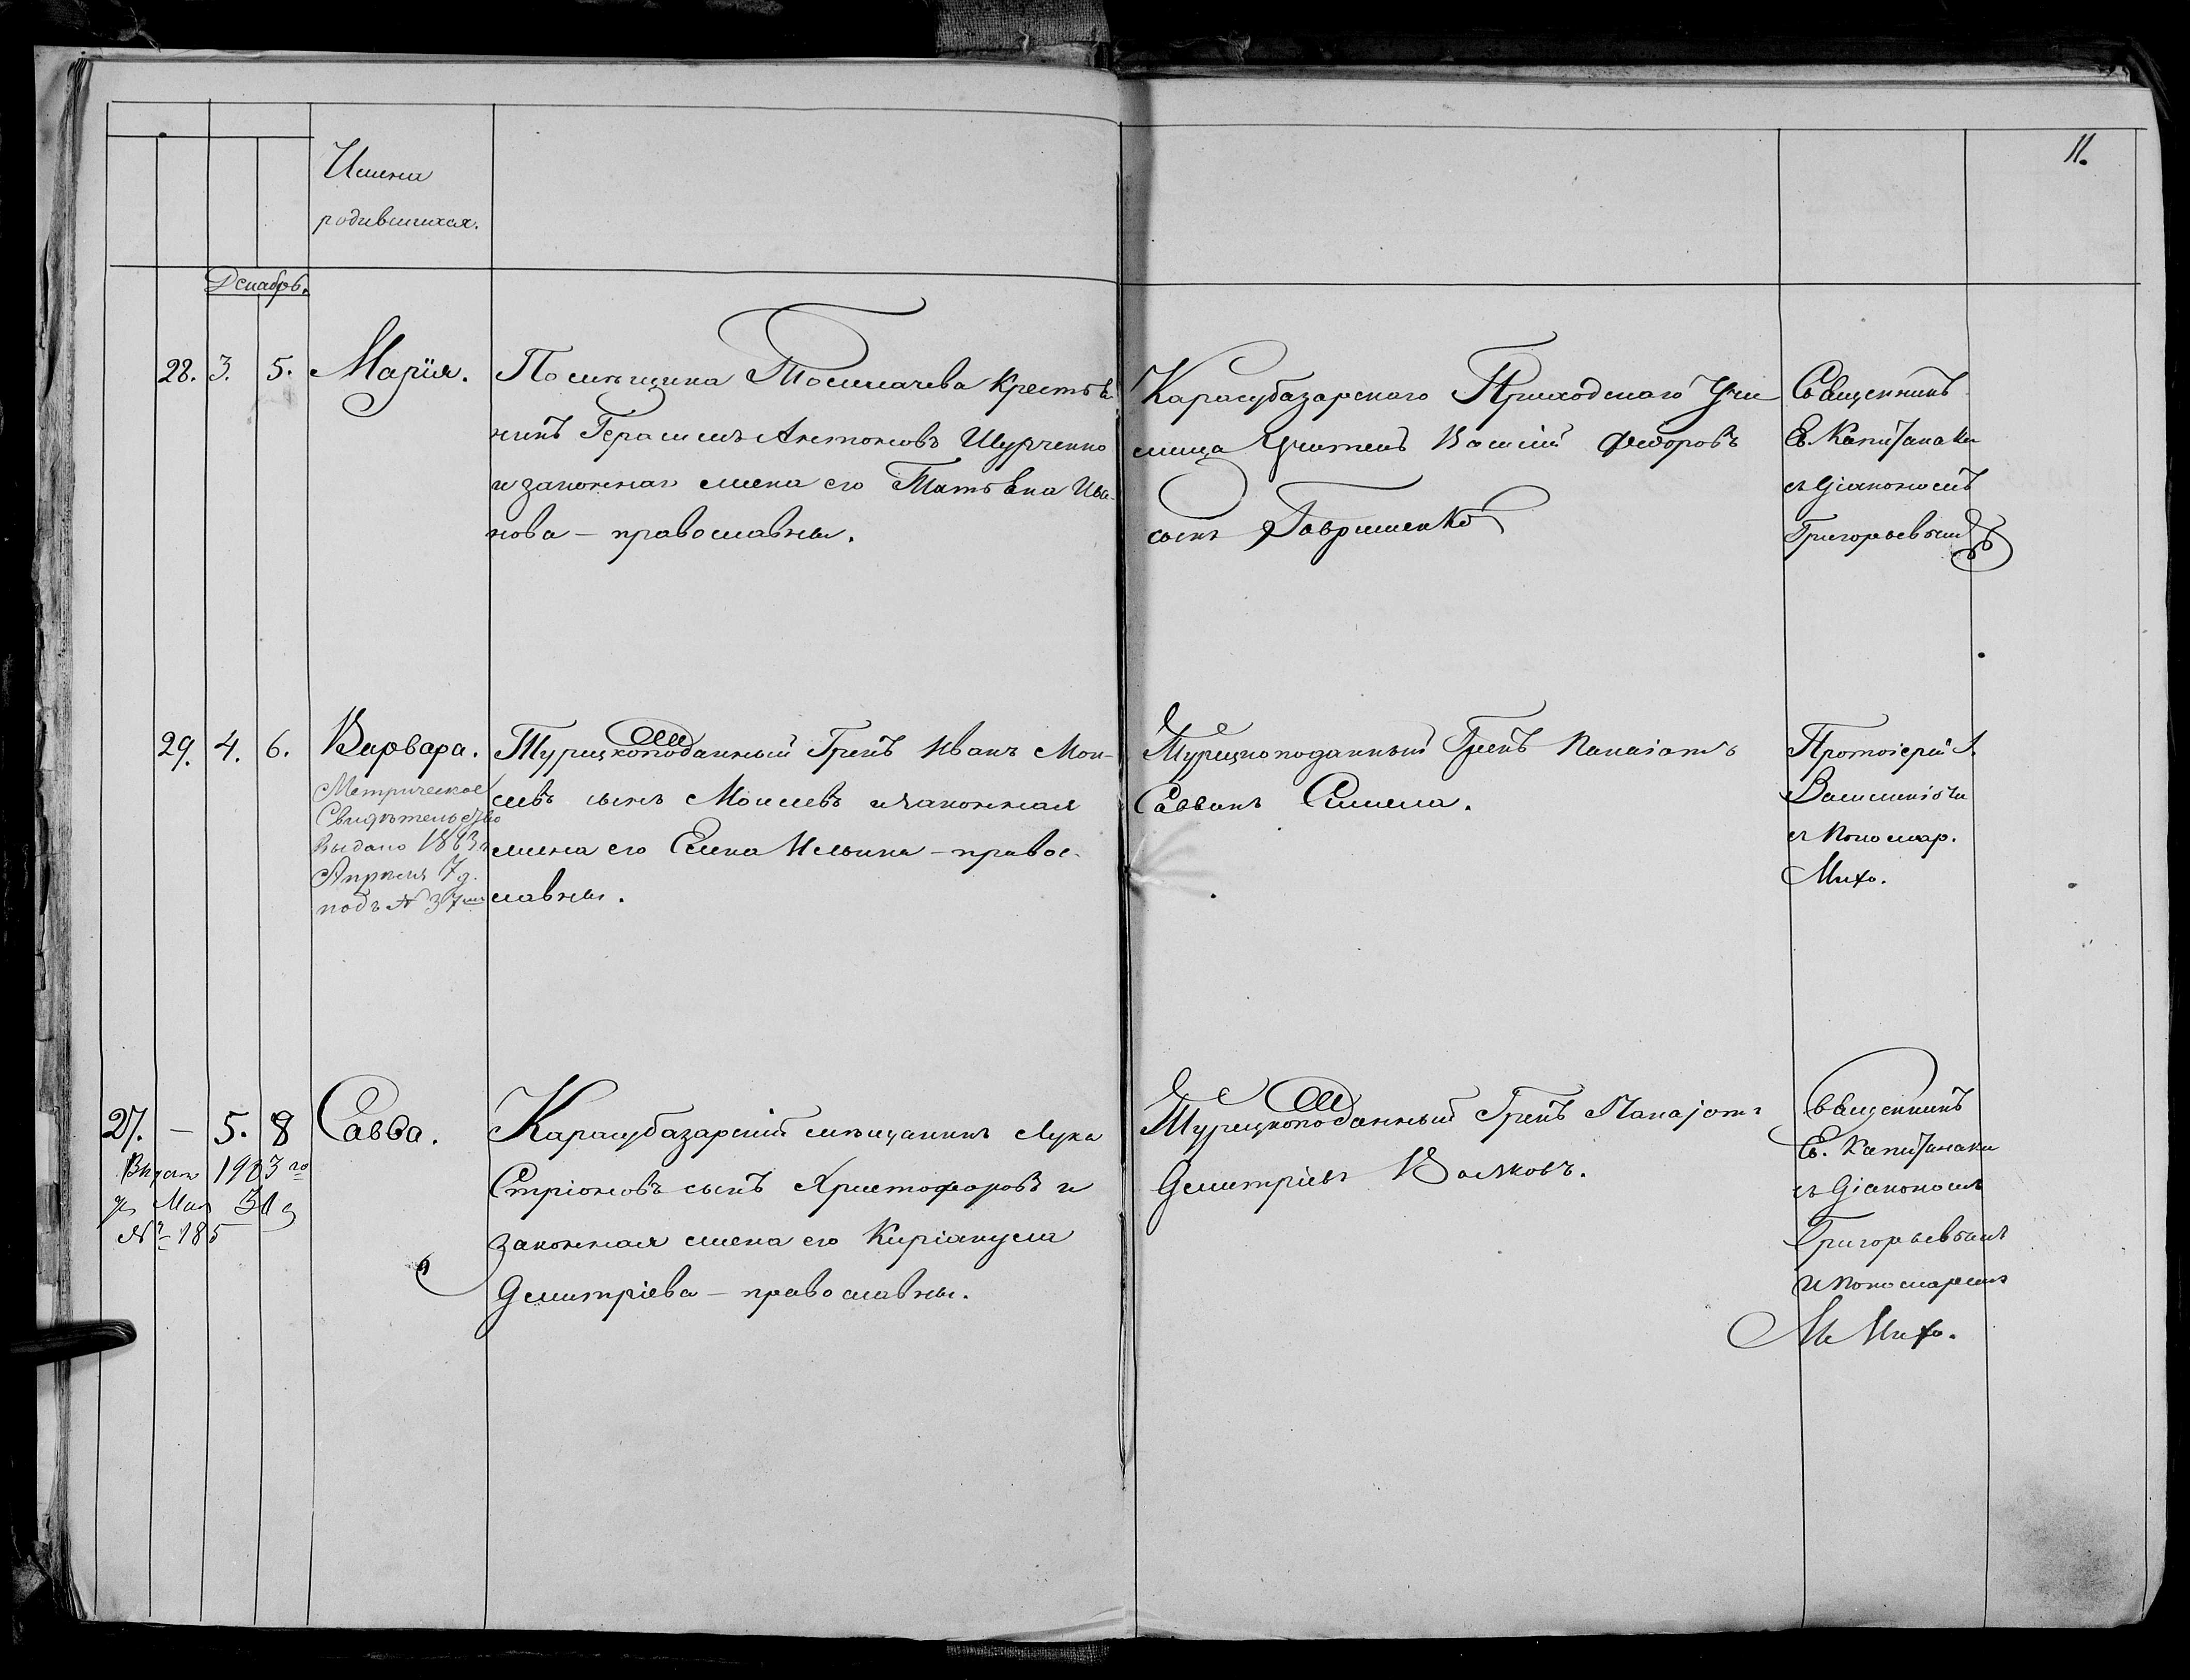 11.
Имена
родившихся.
Декабрь.
28. 3. 5. Марія.
Помѣщика Томилачева Крестья
нинъ Герасимъ Антоновъ Шурченко
и законная жена его Татьяна Ива-
нова – православны.
Карасубазарскаго Приходскаго Учи
лища Учитель Василій Федоровъ
сынъ Гавришенко
Священникъ
Е. Капитанаки
съ Діакономъ
Григорьевымъ
29. 4. 6. Варвара.
Метрическое
Свидѣтельство
выдано 1863 г.
Апрѣля 7 д.
подъ № 37
Турецкоподанный Грекъ Иванъ Мои-
сеевъ сынъ Моисеевъ и законная
жена его Елена Ильина – правос-
лавны.
Турецкоподанный Грекъ Панаіотъ
Саввинъ
Протоіерей
съ Пономар.
Михо.
27. – 5. 8 Савва.
Выдано 1903 го
г. Мая 31 д
№ 185
Карасубазарскій мѣщанинъ Лука
Стріоновъ сынъ Христофоровъ и
законная жена его Киріакула
Дмитріева – православны.
Турецкоподанный Грекъ Панаjотъ
Дмитріевъ Волковъ.
Священникъ
Е. Капитанаки
съ Діакономъ
Григорьевымъ
и пономаремъ
М. Михо.